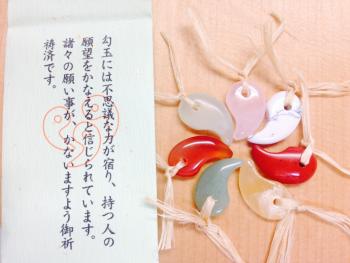 勾玉には不思議な力が宿り、持つ人の
願望をかなえると信じられています。
諸々の願い事が、かないますよう御祈
祷済です。